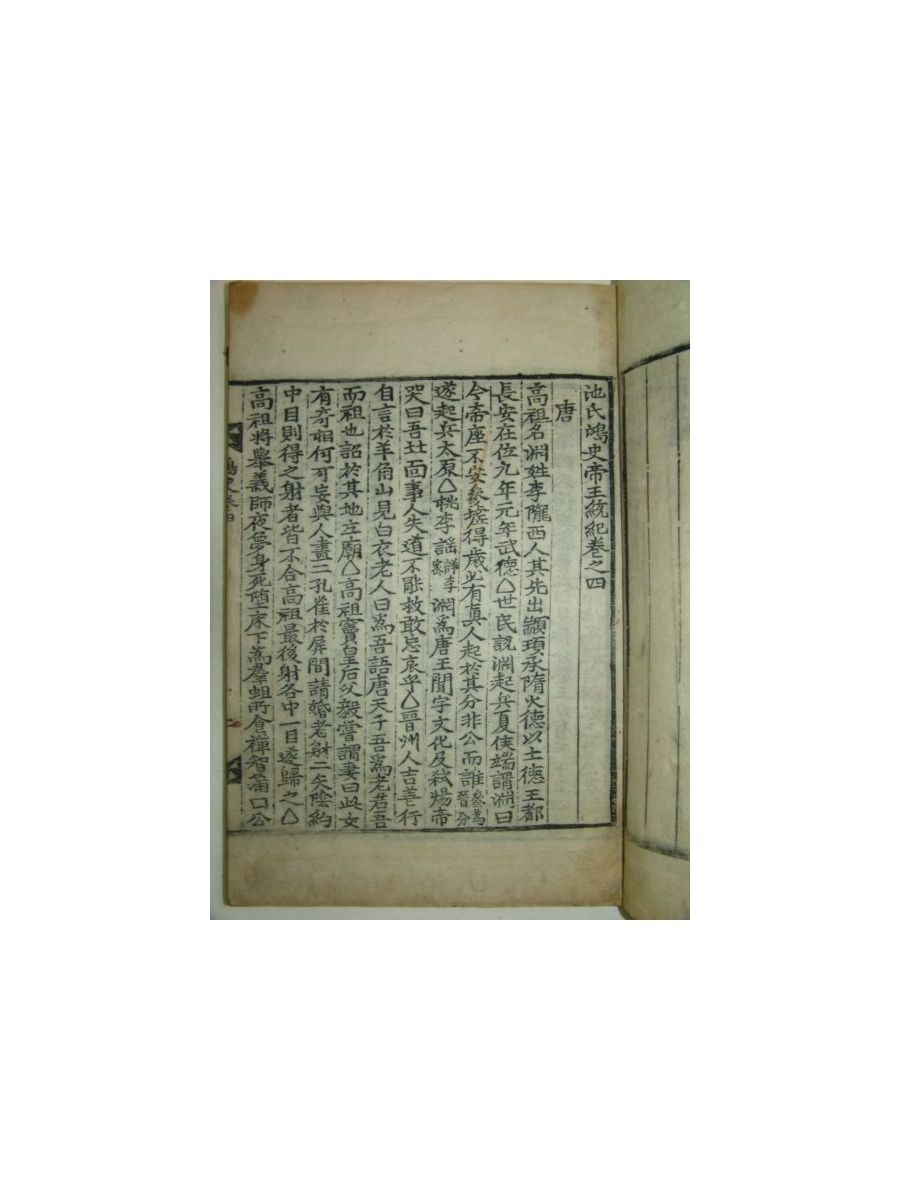 池氏鴻史帝王統紀卷之四
唐
高祖名淵姓李隴西人其先出顓頊承隋火德以土德王都
長安在位九年元年武德△世民說淵起兵夏侯端謂淵曰
今帝座不安參墟得歲必有眞人起於其分非公而誰參爲晉分
遂起兵太原△桃李謠詳李密淵爲唐王聞宇文化及弑煬帝
哭曰吾北面事人失道不能救敢忘哀乎△晉州人吉善行
自言於羊角山見白衣老人曰爲吾語唐天子吾爲老君吾
而祖也詔於其地立廟△高祖竇皇后父毅嘗謂妻曰此女
有奇相何可妄與人畫二孔雀於屏間請婚者射二矢陰約
中目則得之射者皆不合高祖最後射各中一目遂歸之△
高祖將擧義師夜夢身死墮床下爲羣蛆所食禪智滿曰公
鴻史卷四